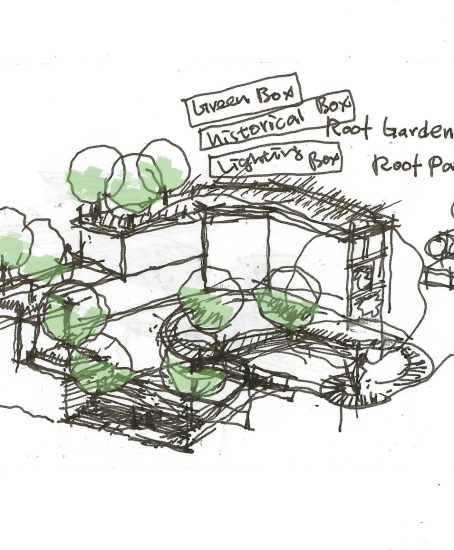 Green Box
historical Box
Lighting Box
Roof Garden
Roof